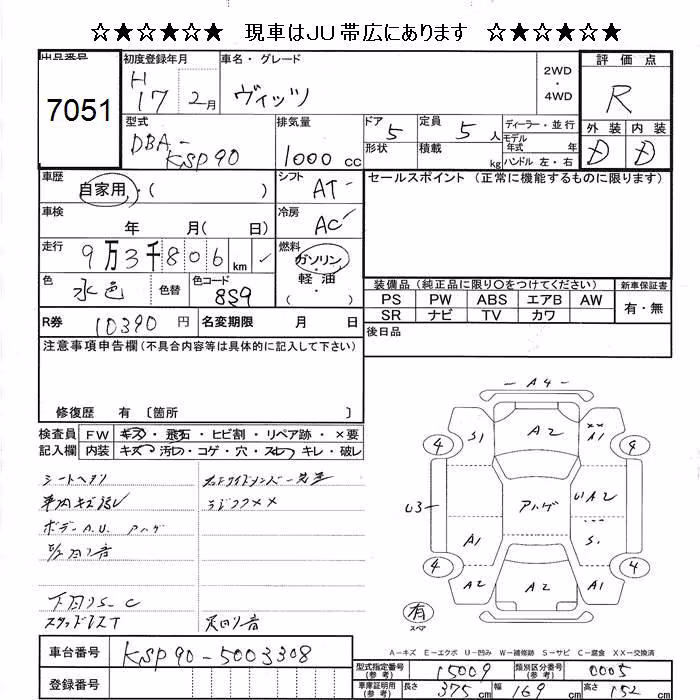 ☆★☆★☆★ 現車はJU帯広にあります ☆★☆★☆★
出品番号 初度登録年月 車名・グレード 評価点
7051 H17 2月 ヴィッツ 2WD・4WD R
型式 排気量 ドア 5 定員 5人 ディーラー・並行 外装 内装
DBA-KSP90 1000cc 形状 積載 kg モデル年式 年 ハンドル 左・右 D D
車歴 自家用・( ) シフト AT セールスポイント (正常に機能するものに限ります)
車検 年 月( 日) 冷房 AC
走行 9万3千806km 燃料 ガソリン・軽油
色 水色 色替 色コード 8S9 装備品(純正品に限り○をつけてください) 新車保証書
PS PW ABS エアB AW 有・無
SR ナビ TV カワ
R券 10390円 名変期限 月 日 後日品
注意事項申告欄(不具合内容等は具体的に記入して下さい)
修復歴 有 〔箇所 〕
検査員 FW キズ・飛石・ヒビ割・リペア跡・×要
記入欄 内装 キズ・汚れ・コゲ・穴・スレ・キレ・破レ
シートヘタリ
車内キズ汚レ
ボデーA.U. アハゲ
下回りS-C
足回り音
A4
4 S1 A2 XX A1 4
U3 アハゲ UA2
A1 S1
4 A2 A2 A1 4
有 スペア
A-キズ E-エクボ U-凹み W-補修跡 S-サビ C-腐食 XX-交換済
車台番号 KSP90-5003308
登録番号
型式指定番号(参考) 15009 類別区分番号(参考) 0005
車庫証明用(参考) 長さ 375cm 幅 169cm 高さ 152cm